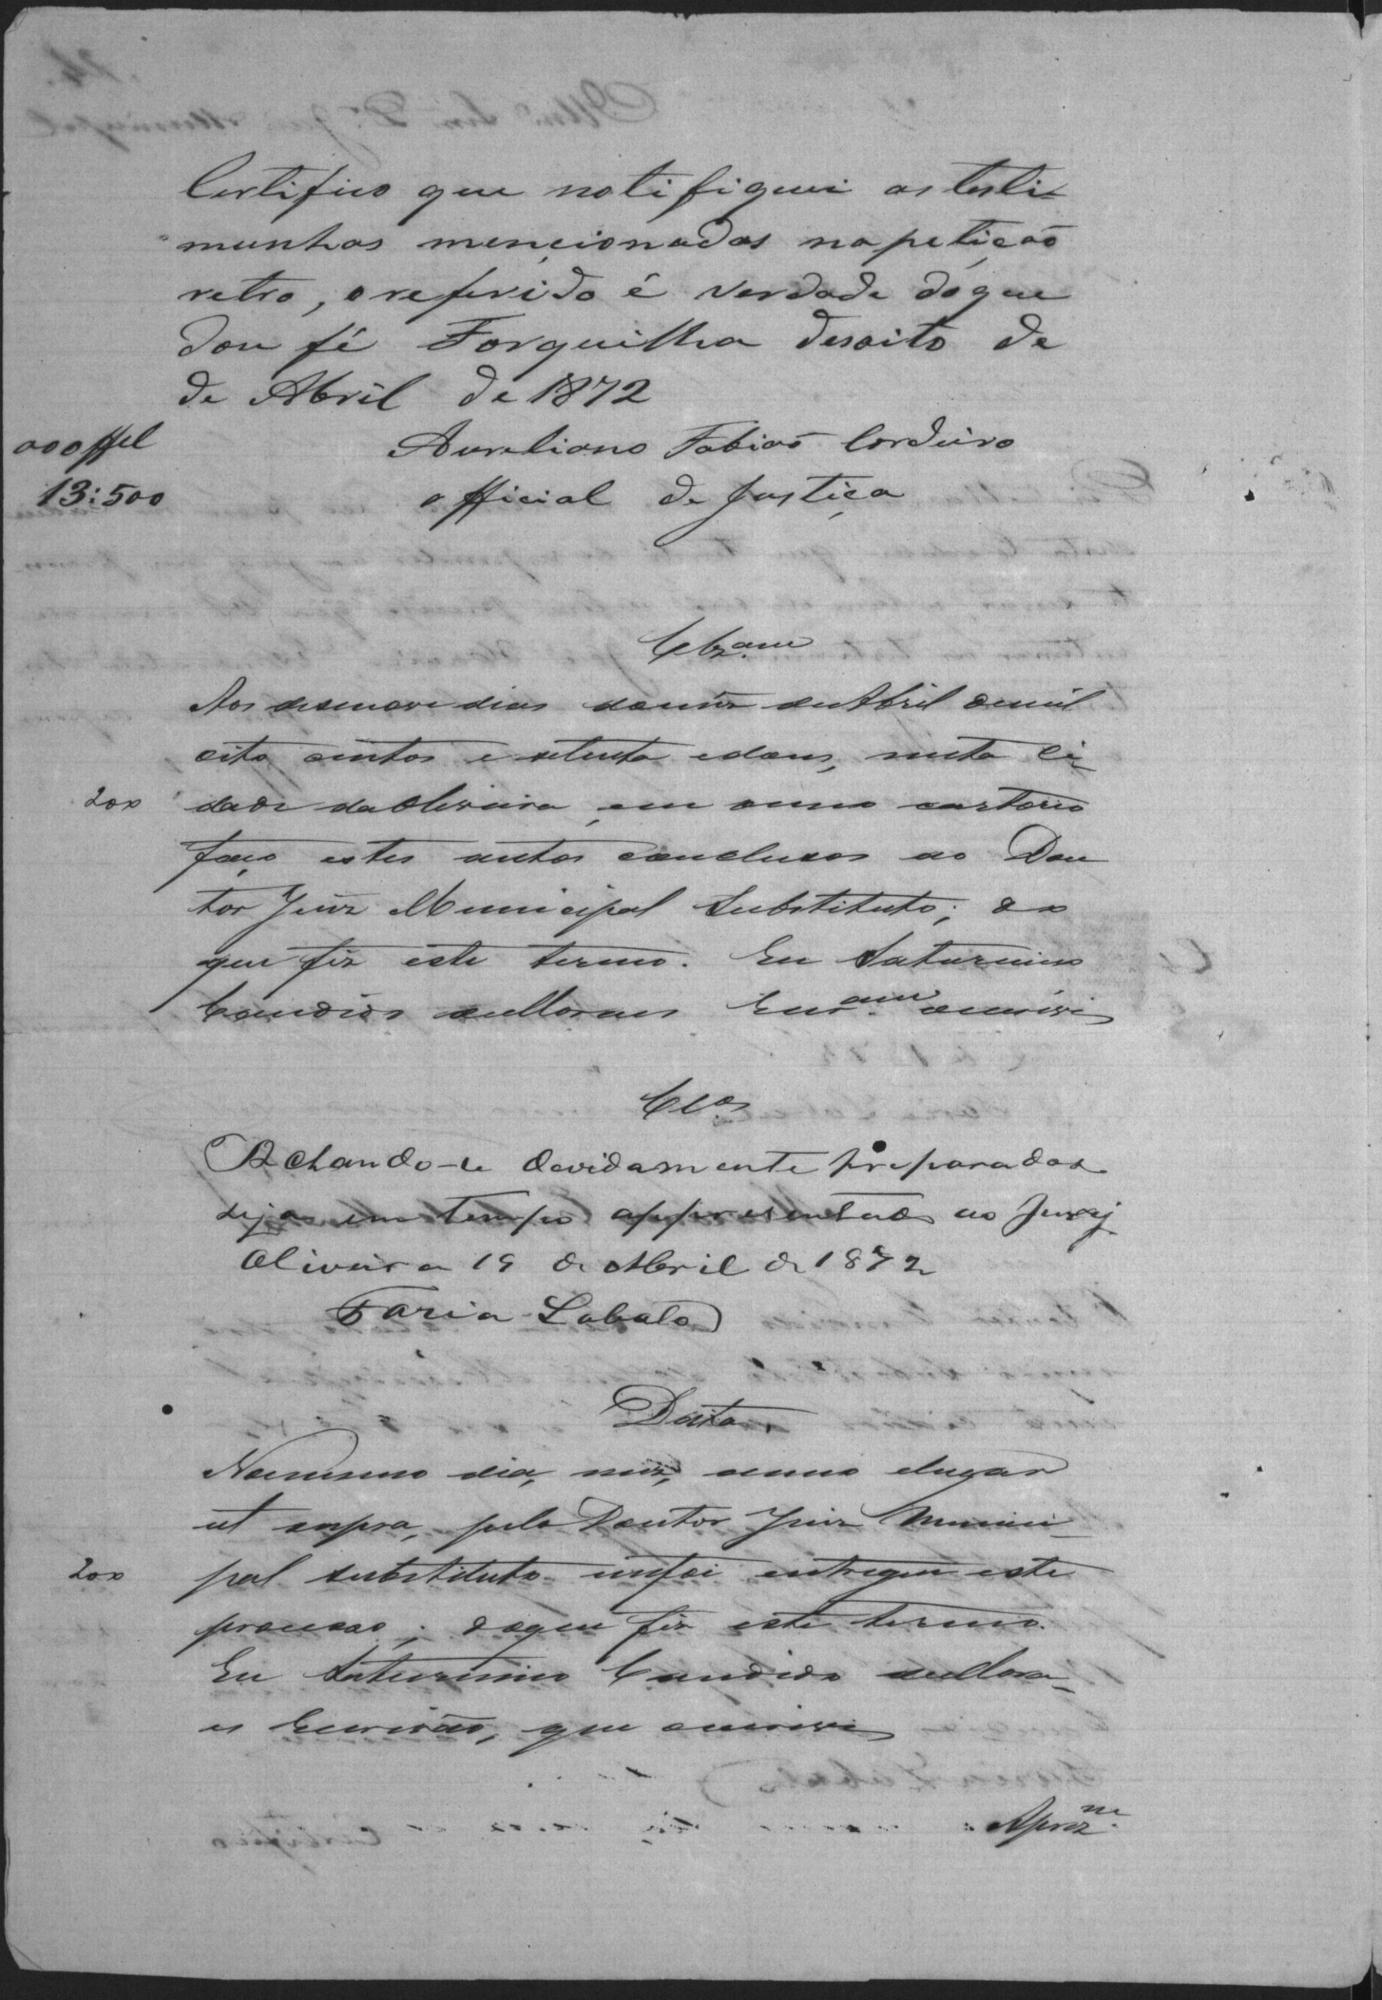 Certifico que notifiquei as testi-
munhas mencionadas na petição
retro, o referido é verdade do que
dou fé Forquilha desoito de
de Abril de 1872
Aureliano Fabiaõ Cordeiro
official de Justiça
ao offel
13:500
Clzam
Aos desenove dias do mez de Abril de mil
oito centos e setenta e dous, nesta Ci-
200
dade da Oliveira, em meu cartorio
faço estes autos conclusos ao Dou
tor Juiz Municipal Substituto; do
que fiz este termo. Eu Saturnino
Candido de Moraes Escrivam escrevi
Clos
Achando-se devidamente preparados
seja em tempo appresentado ao Jury
Oliveira 19 de Abril de 1872
Faria Lobato
Data
No mesmo dia, mez, anno e lugar
ut supra, pelo Doutor Juiz Munici-
200
pal substituto me foi entregue este
processo; do que fiz este termo.
Eu Saturnino Candido de Mora-
es Escrivão, que escrevi